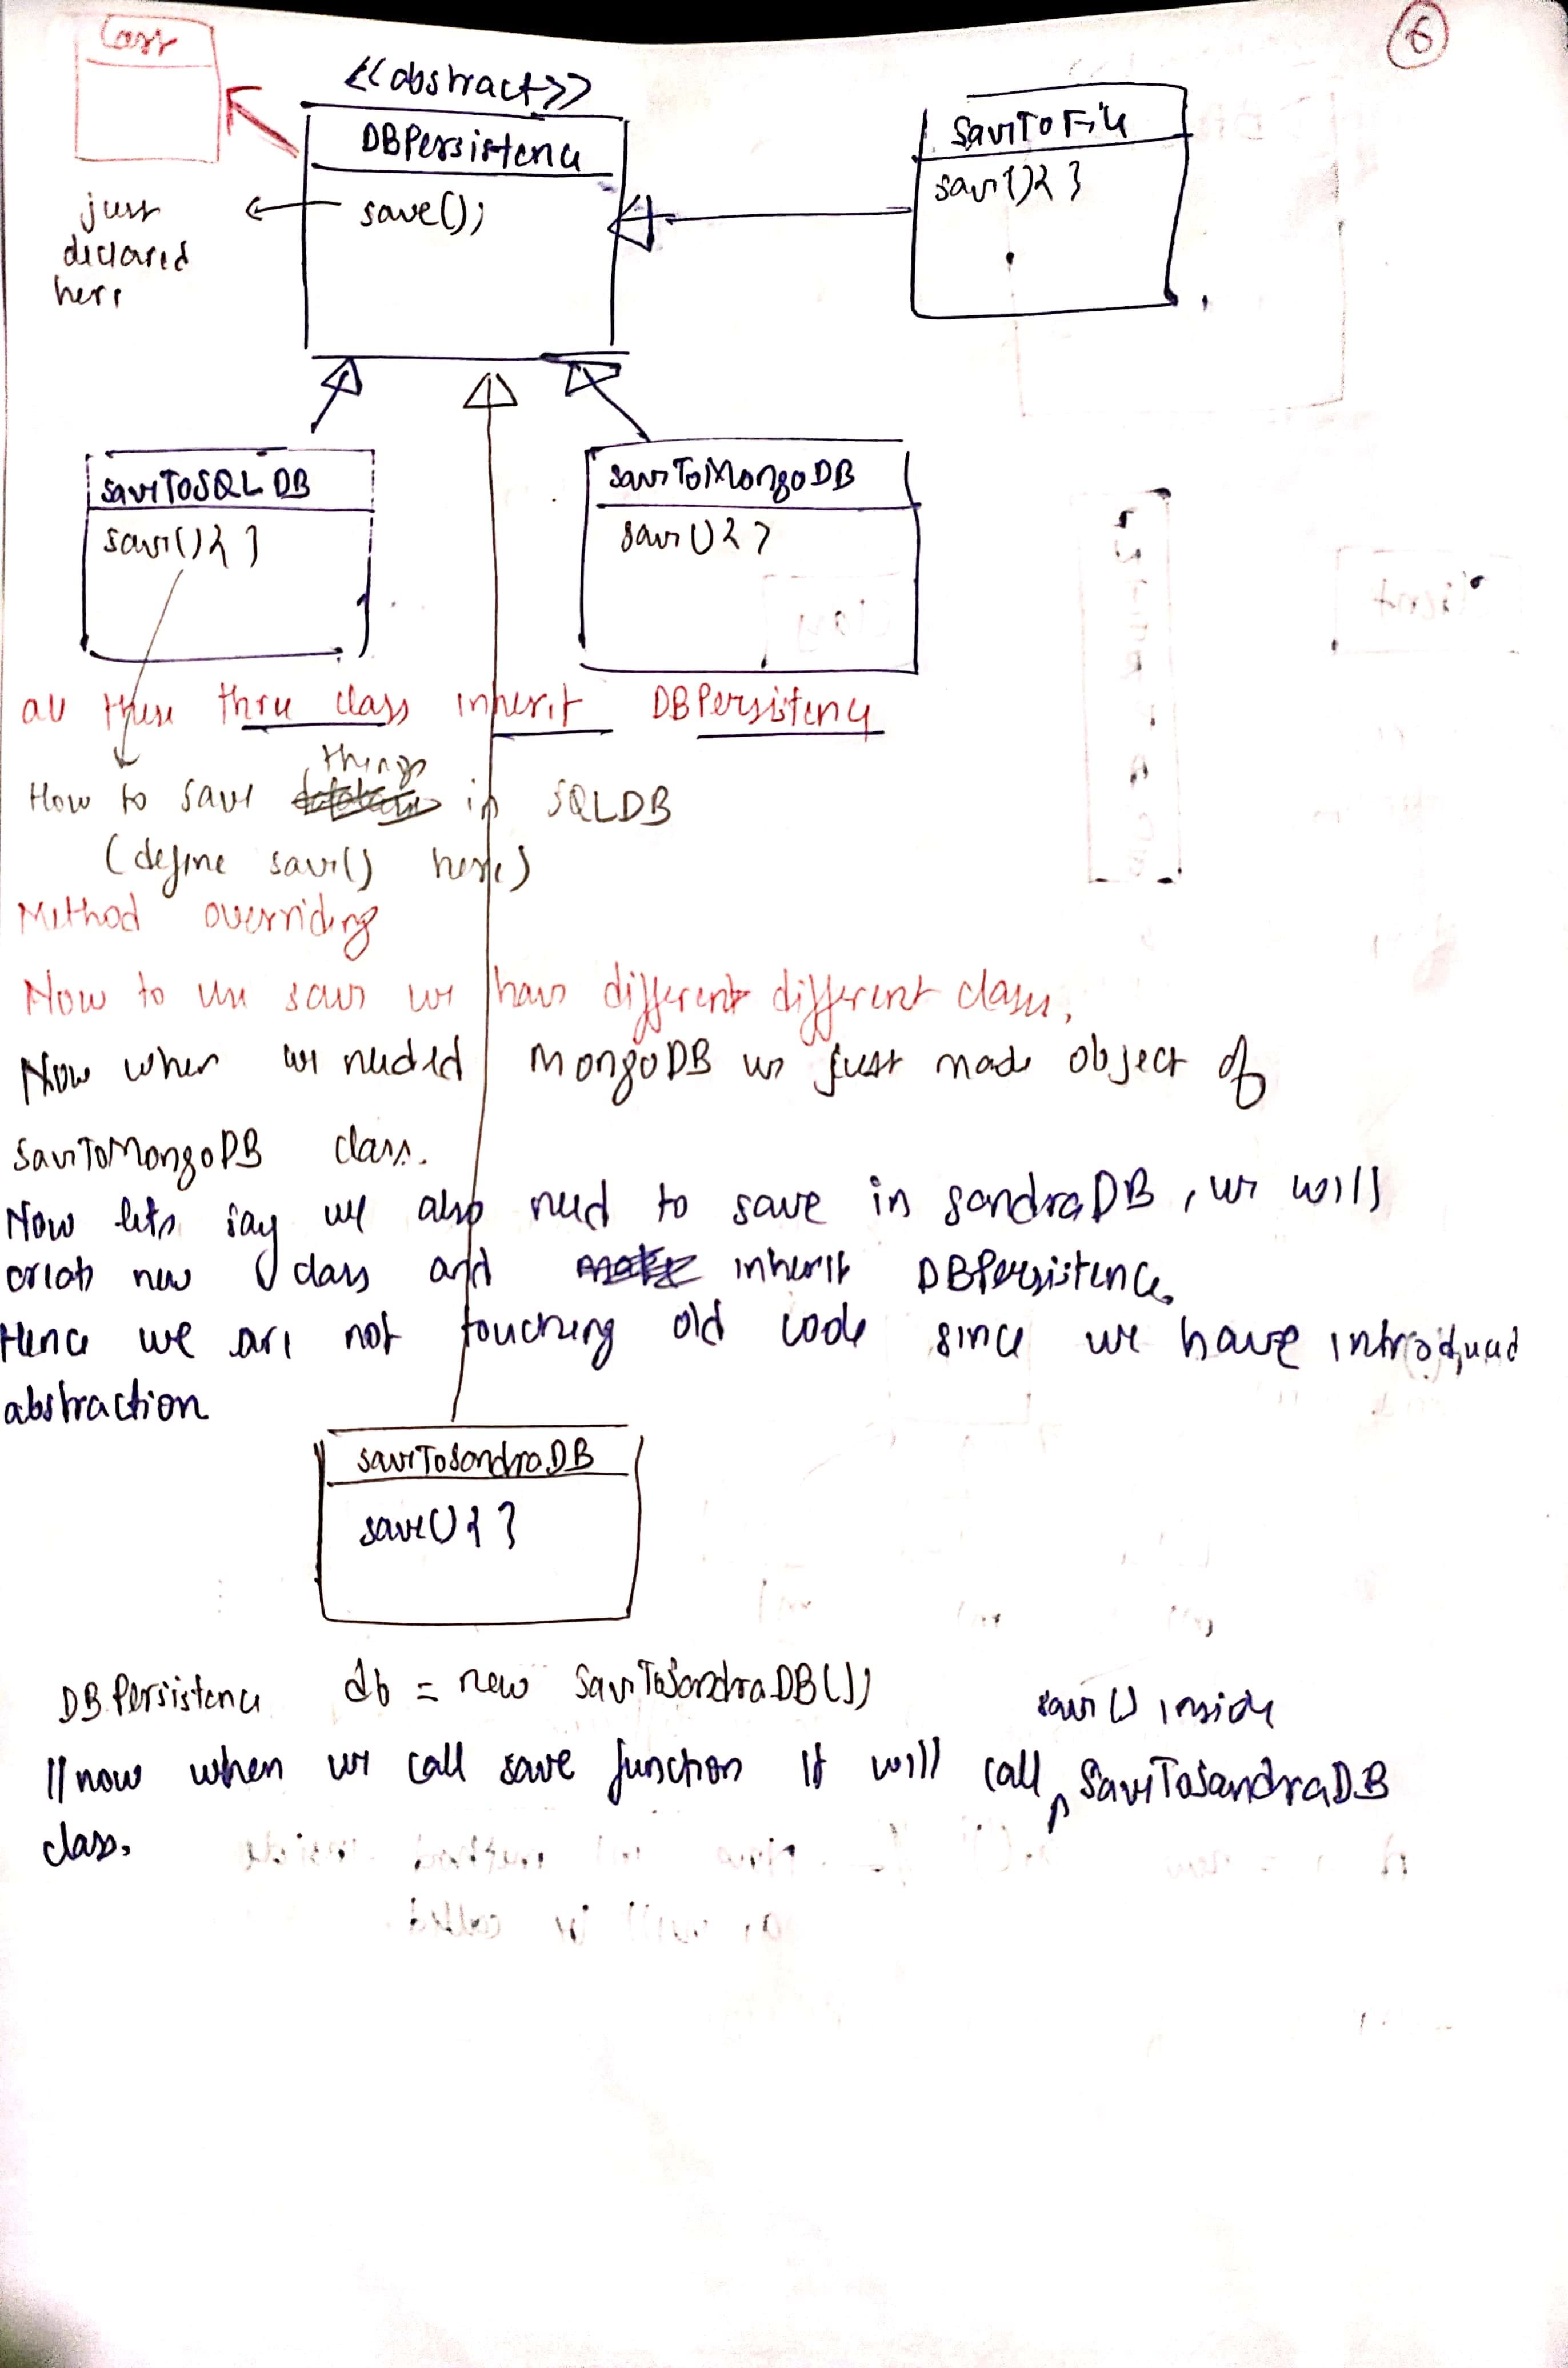 6
Cart
<<abstract>>
DBPersistence
save();
just
declared
here
SaveToFile
save(){ }
SaveToSQLDB
save(){ }
SaveToMongoDB
save(){ }
all these three class inherit DBPersistency
How to save things in SQLDB
(define save() here)
Method overriding
Now to use save we have different different class.
Now when we needed MongoDB we just made object of
SaveToMongoDB class.
Now lets say we also need to save in sandraDB, we will
create new class and inherit DBPersistence.
Hence we are not touching old code since we have introduced
abstraction
saveTosandraDB
save(){ }
DBPersistence db = new SaveToSandraDB();
//now when we call save function it will call save() inside SaveToSandraDB
class.